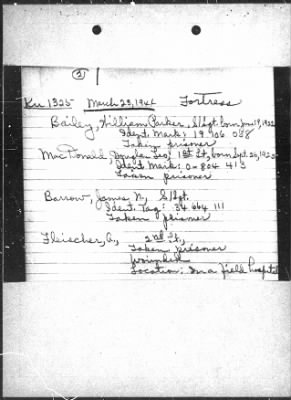 (2)
Ku 1325 March 23, 1944 Fortress
Bailey, William Parker, S/Sgt. born Jan 19, 1922
Ident. Mark: 19 106 058
Taken prisoner
Mac Donald, Douglas Leo, 1st Lt., born Sept. 26,
Ident. Mark: O-804 413
Taken prisoner
Barrow, James N., S/Sgt.
Ident. Tag: 34 664 111
Taken prisoner
Fleischer, G., 2nd Lt.,
Taken prisoner
wounded
Location: In a field hospital